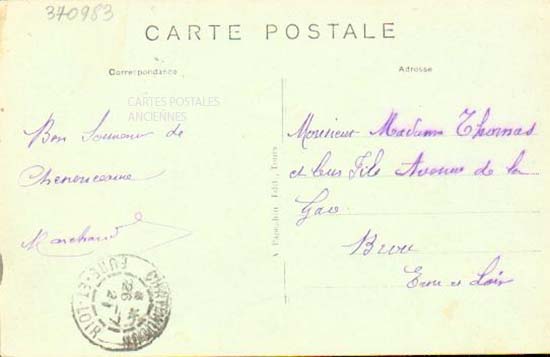 370983
CARTE POSTALE
Correspondance
Adresse
CARTES POSTALES
ANCIENNES
Bon Souvenir de
Chenonceaux
Marchand
A. Papeghin, Edit., Tours
Monsieur Madame Thomas
et leur Fils Avenue de la
Gare
Brou
Eure et Loir
EURE-ET-LOIR